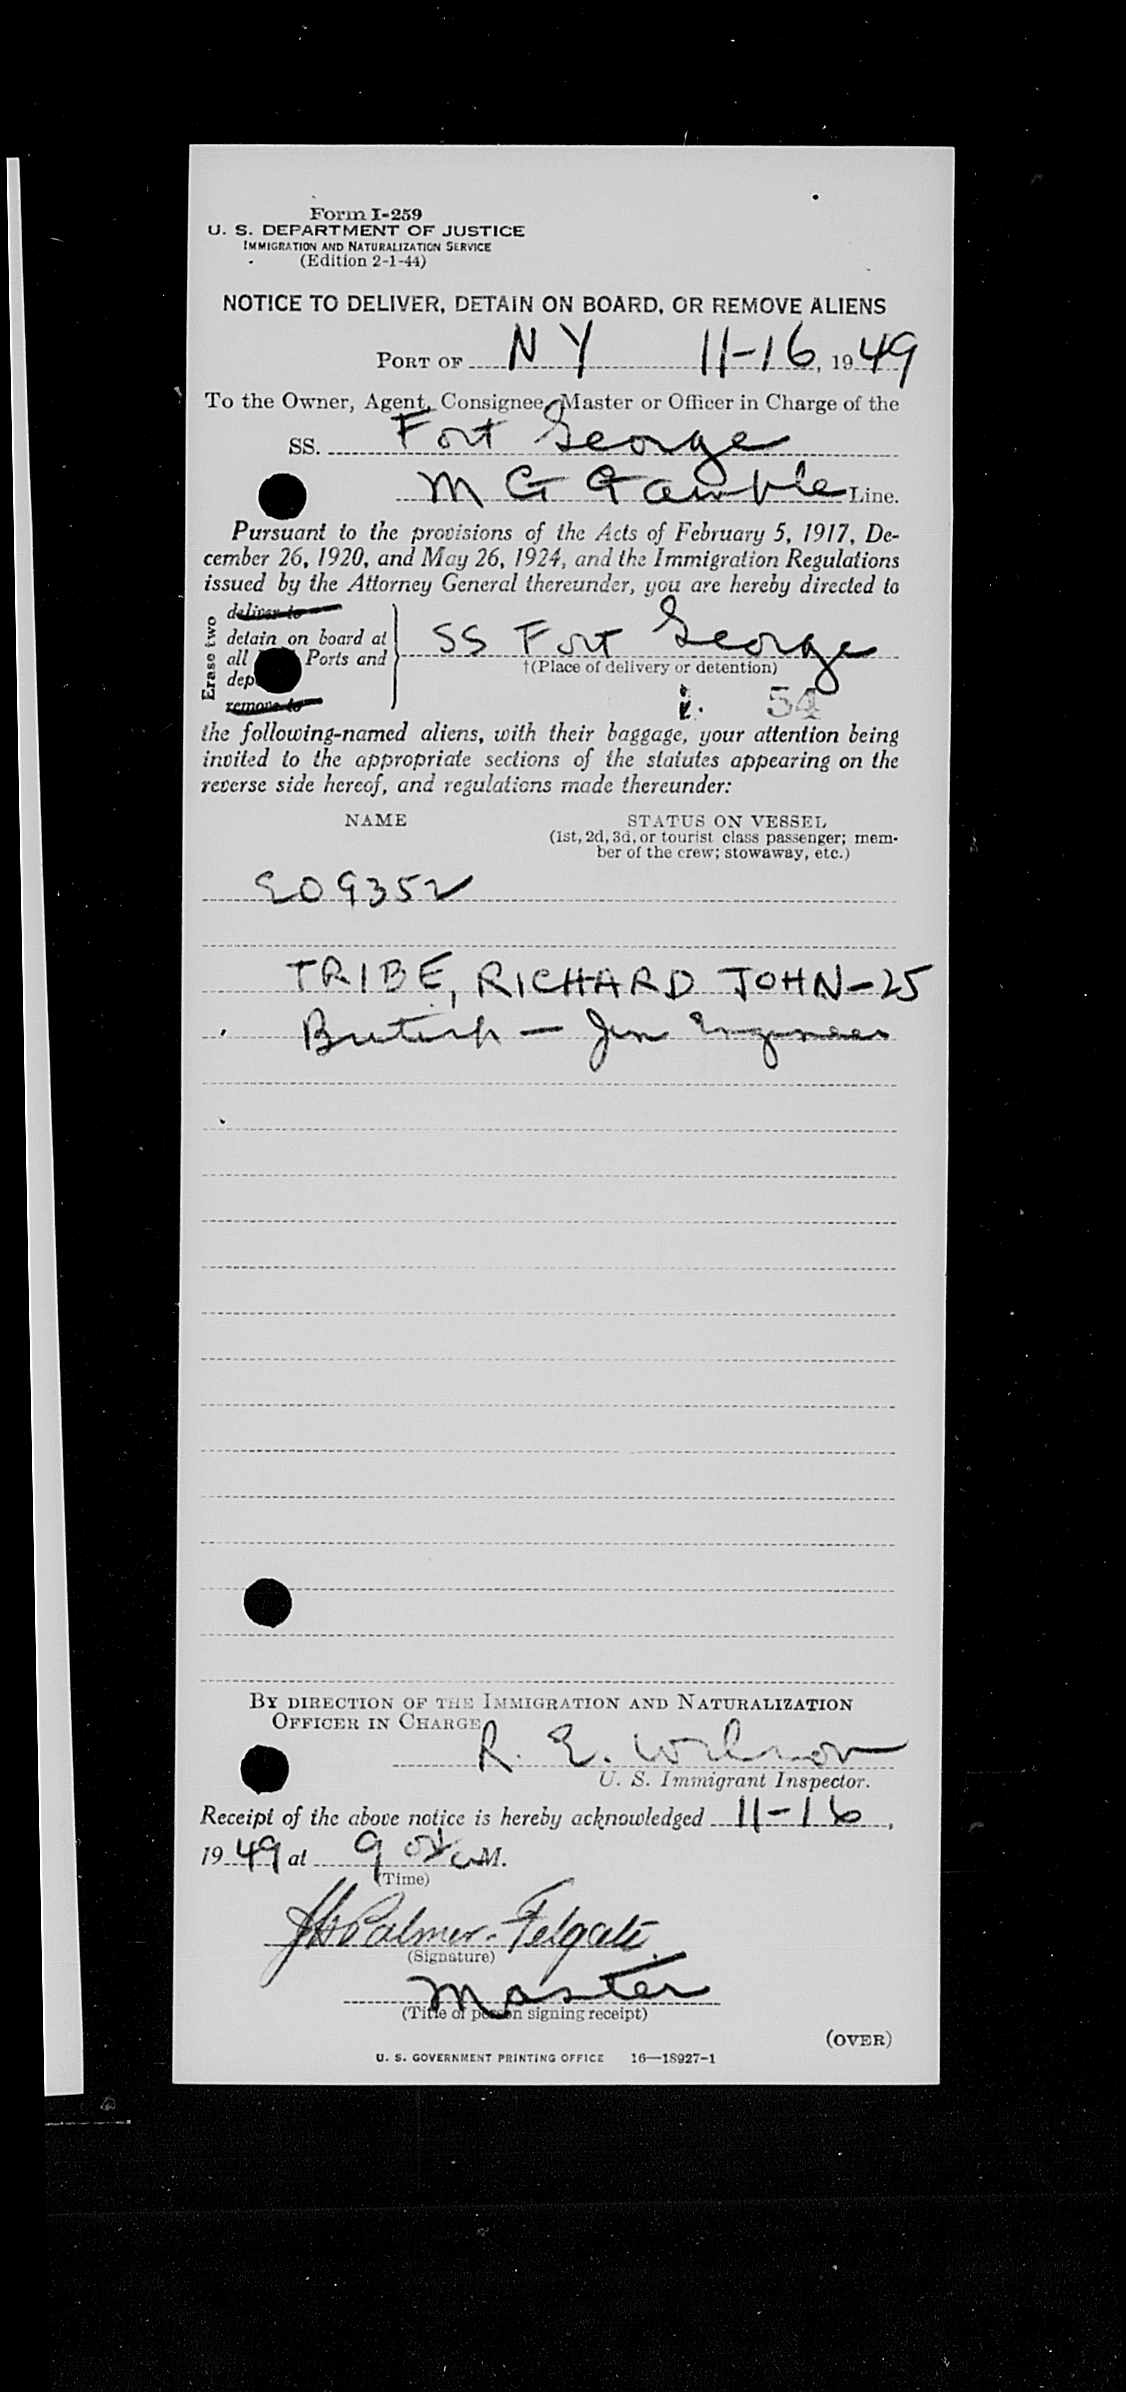 Form I-259
U. S. DEPARTMENT OF JUSTICE
IMMIGRATION AND NATURALIZATION SERVICE
(Edition 2-1-44)
NOTICE TO DELIVER, DETAIN ON BOARD, OR REMOVE ALIENS
PORT OF N Y 11-16, 1949
To the Owner, Agent, Consignee, Master or Officer in Charge of the
SS. Fort George
M G Gamble Line.
Pursuant to the provisions of the Acts of February 5, 1917, De-
cember 26, 1920, and May 26, 1924, and the Immigration Regulations
issued by the Attorney General thereunder, you are hereby directed to
Erase two
deliver to
detain on board at
all Ports and
dep
remove to
SS Fort George
†(Place of delivery or detention)
54
the following-named aliens, with their baggage, your attention being
invited to the appropriate sections of the statutes appearing on the
reverse side hereof, and regulations made thereunder:
NAME STATUS ON VESSEL
(1st, 2d, 3d, or tourist class passenger; mem-
ber of the crew; stowaway, etc.)
E09352
TRIBE, RICHARD JOHN-25
British - Jun Engineer
BY DIRECTION OF THE IMMIGRATION AND NATURALIZATION
OFFICER IN CHARGE
R. E. Wilson
U. S. Immigrant Inspector.
Receipt of the above notice is hereby acknowledged 11-16,
1949 at 9 M.
(Time)
Palmer-Felgate.
(Signature)
Master
(Title of person signing receipt)
(OVER)
U. S. GOVERNMENT PRINTING OFFICE 16—18927-1